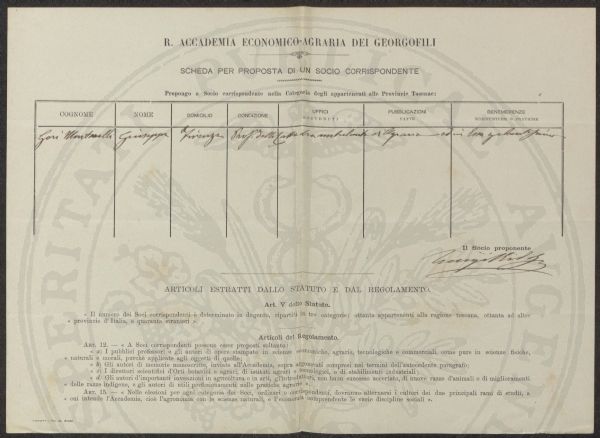 R. ACCADEMIA ECONOMICO-AGRARIA DEI GEORGOFILI
SCHEDA PER PROPOSTA DI UN SOCIO CORRISPONDENTE
Propongo a Socio corrispondente nella Categoria degli appartenenti alle Provincie Toscane:
COGNOME NOME DOMICILIO CONDIZIONE UFFICI SOSTENUTI PUBBLICAZIONI FATTE BENEMERENZE SCIENTIFICHE O PRATICHE
Gori Montanelli Giuseppe Firenze Prof. della Cattedra ambulante di Agraria
Il Socio proponente
ARTICOLI ESTRATTI DALLO STATUTO E DAL REGOLAMENTO.
Art. V dello Statuto.
« Il numero dei Soci corrispondenti è determinato in dugento, ripartiti in tre categorie; ottanta appartenenti alla regione toscana, ottanta ad altre
« provincie d'Italia, e quaranta stranieri ».
Articoli del Regolamento.
ART. 12. — « A Soci corrispondenti possono esser proposti soltanto:
« a) I pubblici professori e gli autori di opere stampate in scienze economiche, agrarie, tecnologiche e commerciali, come pure in scienze fisiche,
« naturali e morali, perchè applicate agli oggetti di quelle;
« b) Gli autori di memorie manoscritte, inviate all'Accademia, sopra argomenti compresi nei termini dell'antecedente paragrafo;
« c) I direttori scientifici d'Orti botanici e agrari, di istituti agrari e tecnologici, e di stabilimenti industriali;
« d) Gli autori d'importanti invenzioni in agricoltura e in arti, gl'introduttori, con buon successo accertato, di nuove razze d'animali e di miglioramenti
« delle razze indigene, e gli autori di utili perfezionamenti nelle pratiche agrarie ».
ART. 15. — « Nelle elezioni per ogni categoria dei Soci, ordinari e corrispondenti, dovranno alternarsi i cultori dei due principali rami di studii, a
« cui intende l'Accademia, cioè l'agronomia con le scienze naturali, e l'economia comprendente le varie discipline sociali ».